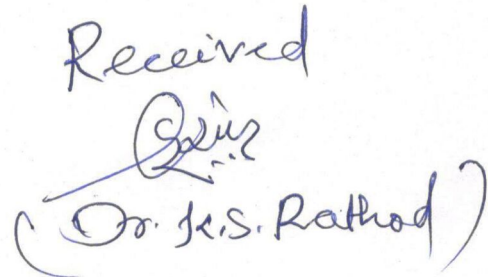 Received
(Dr. K.S. Rathod)